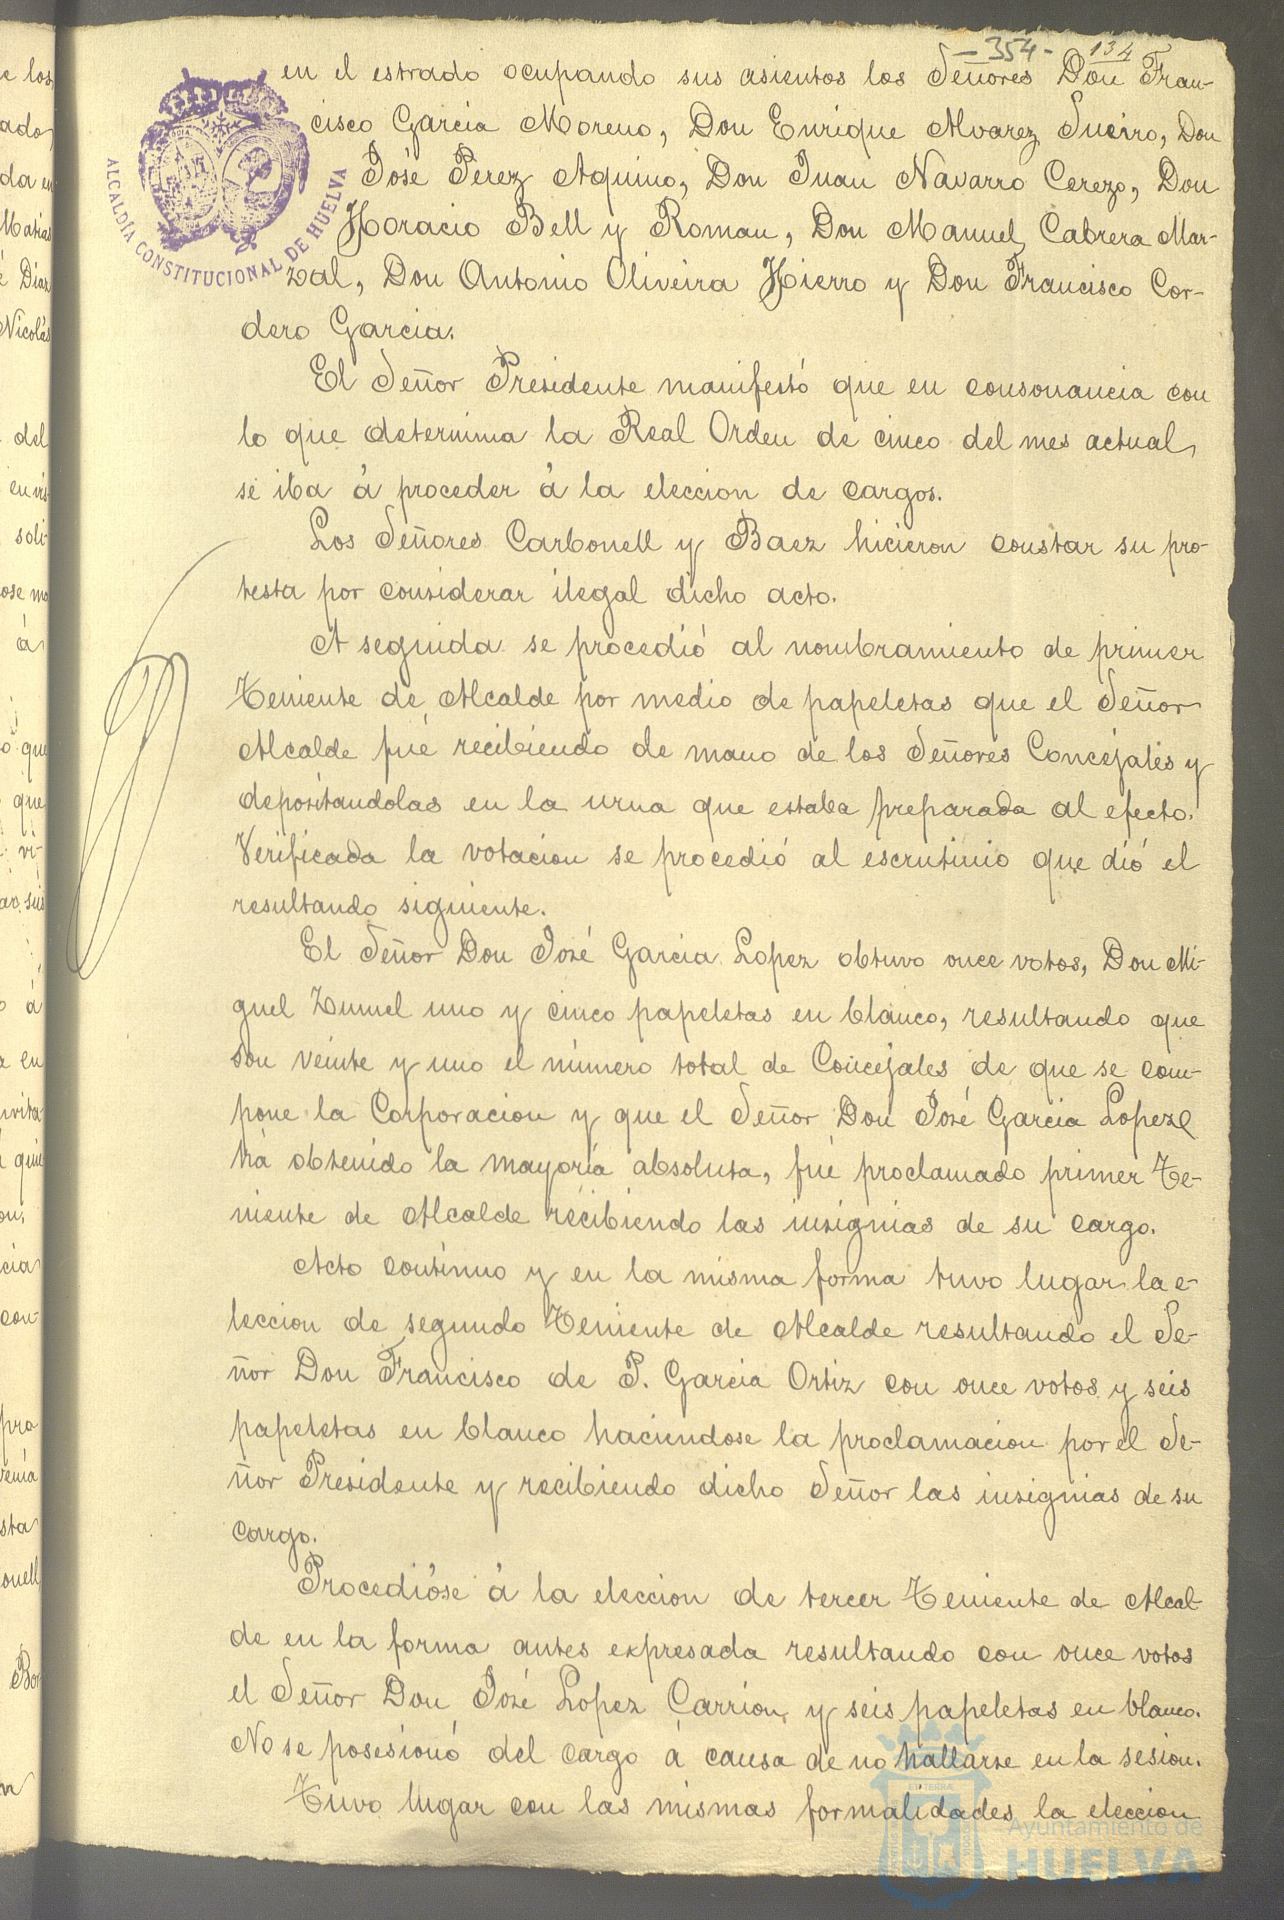 -354- 134
en el estrado ocupando sus asientos los Señores Don Fran-
cisco Garcia Moreno, Don Enrique Alvarez Sueiro, Don
José Perez Aquino, Don Juan Navarro Cerezo, Don
Horacio Bell y Roman, Don Manuel Cabrera Mar-
zal, Don Antonio Oliveira Hierro y Don Francisco Cor-
dero Garcia.
El Señor Presidente manifestó que en consonancia con
lo que determina la Real Orden de cinco del mes actual,
se iba á proceder á la eleccion de cargos.
Los Señores Carbonell y Baez hicieron constar su pro-
testa por considerar ilegal dicho acto.
A seguida se procedió al nombramiento de primer
Teniente de Alcalde por medio de papeletas que el Señor
Alcalde fué recibiendo de mano de los Señores Concejales y
depositandolas en la urna que estaba preparada al efecto.
Verificada la votacion se procedió al escrutinio que dió el
resultando siguiente.
El Señor Don José Garcia Lopez obtuvo once votos, Don Mi-
guel uno y cinco papeletas en blanco, resultando que
son veinte y uno el número total de Concejales de que se com-
pone la Corporacion y que el Señor Don José Garcia Lopez
há obtenido la mayoría absoluta, fué proclamado primer Te-
niente de Alcalde recibiendo las insignias de su cargo.
Acto continuo y en la misma forma tuvo lugar la e-
leccion de segundo Teniente de Alcalde resultando el Se-
ñor Don Francisco de P. Garcia Ortiz con once votos y seis
papeletas en blanco haciendose la proclamacion por el Se-
ñor Presidente y recibiendo dicho Señor las insignias de su
cargo.
Procedióse á la eleccion de tercer Teniente de Alcal-
de en la forma antes expresada resultando con once votos
el Señor Don José Lopez Carrion y seis papeletas en blanco.
No se posesionó del cargo á causa de no hallarse en la sesion.
Tuvo lugar con las mismas formalidades la eleccion
ALCALDÍA CONSTITUCIONAL DE HUELVA
Ayuntamiento de
HUELVA